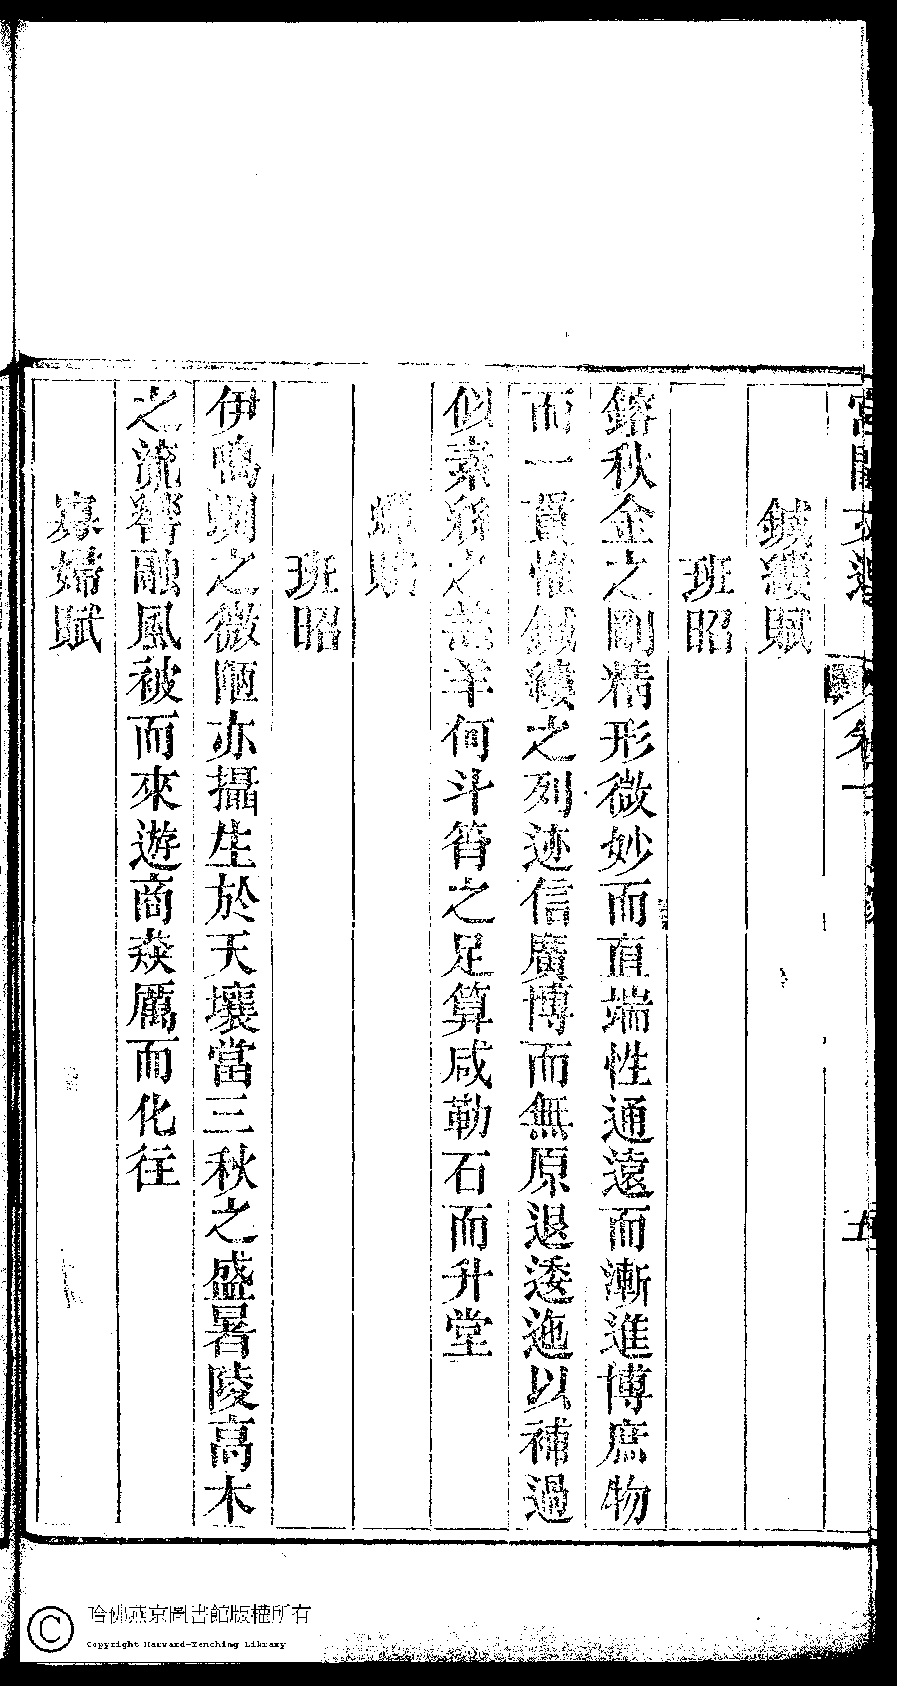 宮閨文選 卷一 五
鍼縷賦
班昭
鎔秋金之剛精形微妙而直端性通遠而漸進博庶物
而一貫惟鍼縷之列迹信廣博而無原退逶迤以補過
似素絲之羔羊何斗筲之足算咸勒石而升堂
蟬賦
班昭
伊鳴蜩之微陋亦攝生於天壤當三秋之盛暑陵高木
之流響融風被而來遊商猋厲而化往
寡婦賦
哈佛燕京圖書館版權所有
Copyright Harvard-Yenching Library